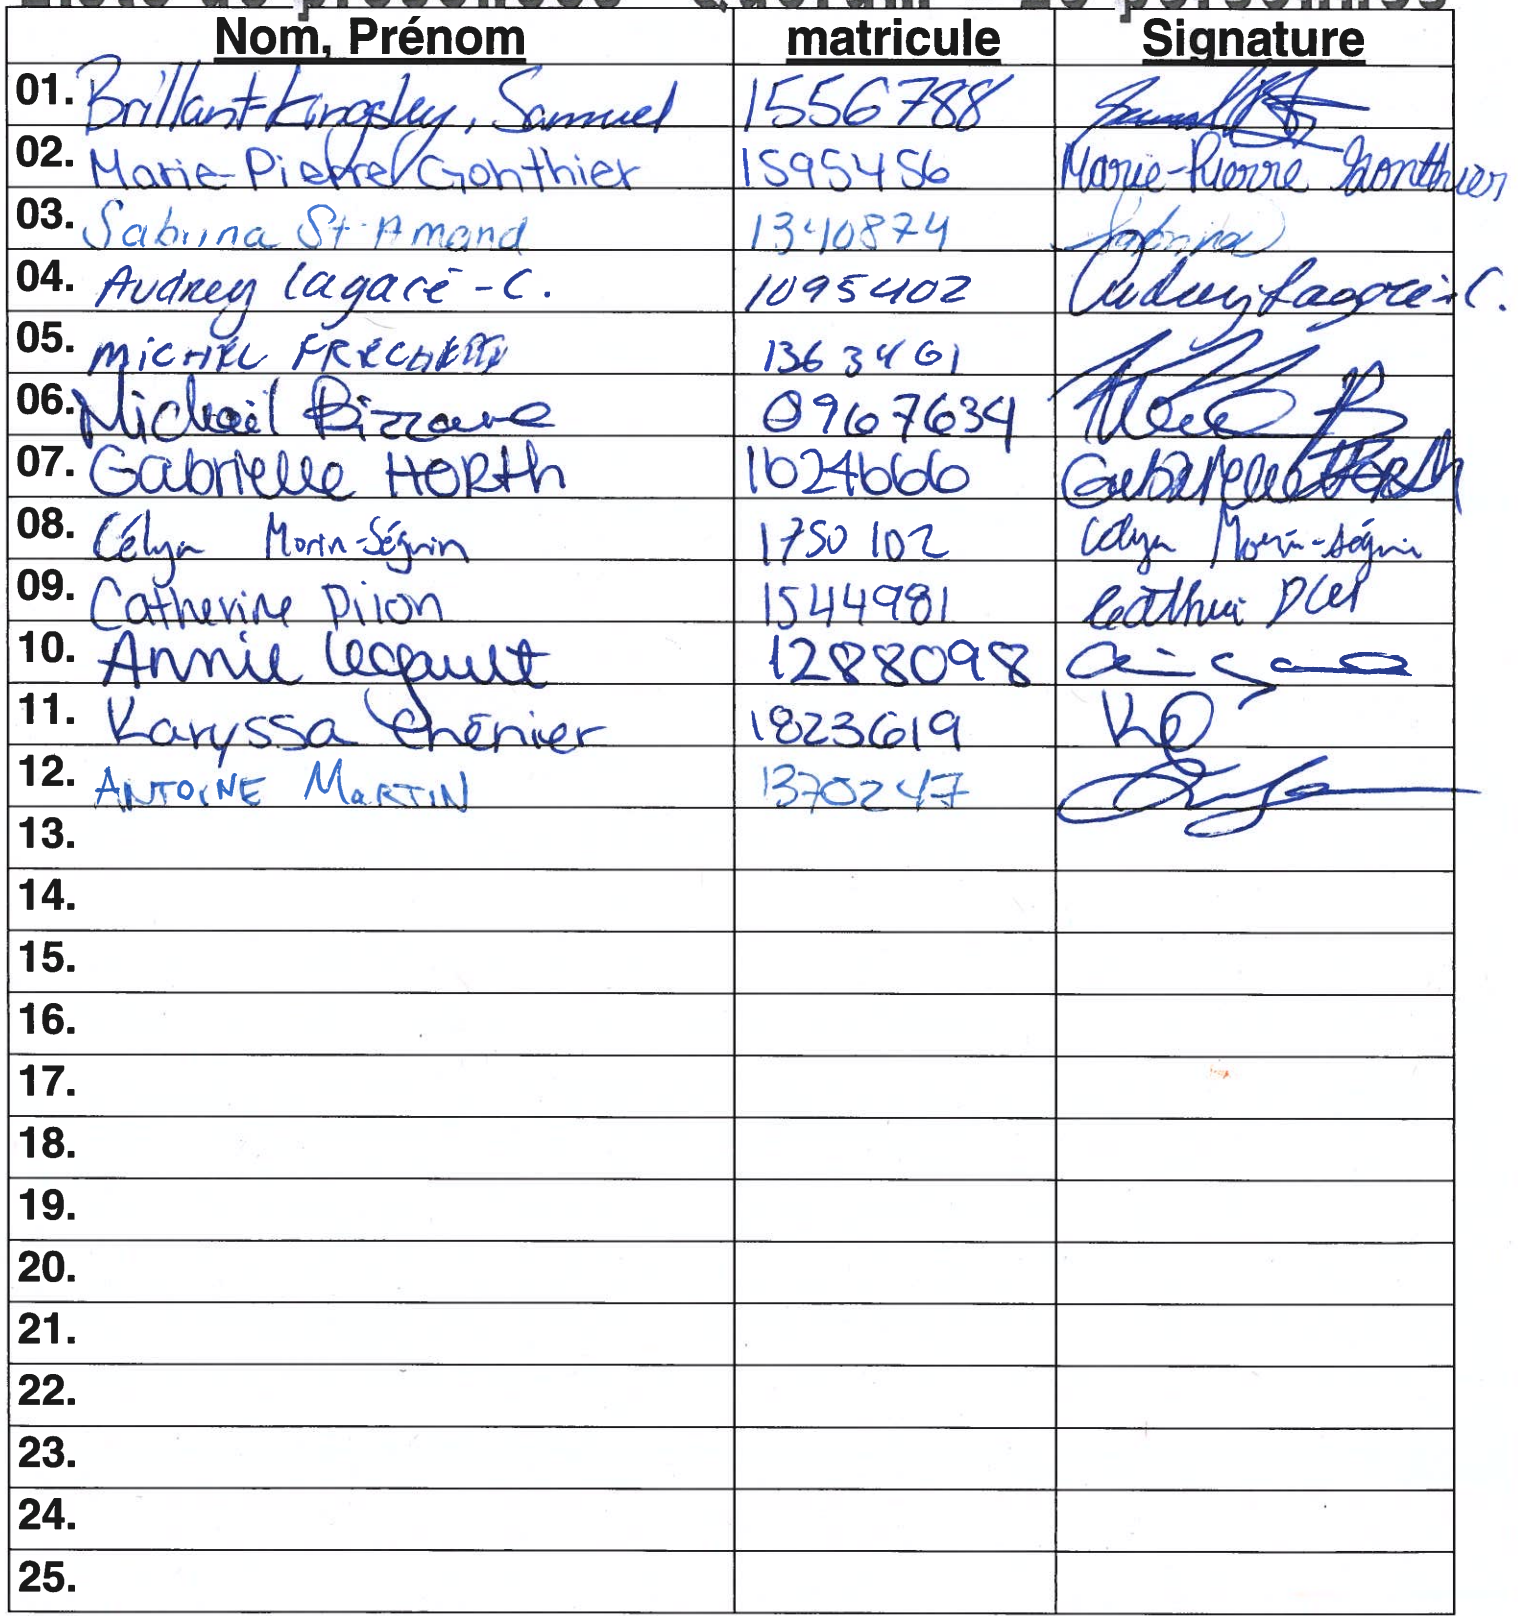 Nom, Prénom matricule Signature
01. Brillant-Kingsley, Samuel 1556788
02. Marie-Pierre Gonthier 1595456 Marie-Pierre Gonthier
03. Sabrina St-Amand 1340874 Sabrina
04. Audrey Lagacé-C. 1095402 Audrey Lagacé-C.
05. MICHEL FRECHETTE 1363461
06. Mickaël Bizzare 0967634
07. Gabrielle HORTh 1624666 Gabrielle Horth
08. Célya Morin-Séguin 1750102 Célya Morin-Séguin
09. Catherine Pilon 1544981
10. Annie Legault 1288098
11. Karyssa Chénier 1823619 KC
12. ANTOINE MARTIN 1370247
13.
14.
15.
16.
17.
18.
19.
20.
21.
22.
23.
24.
25.